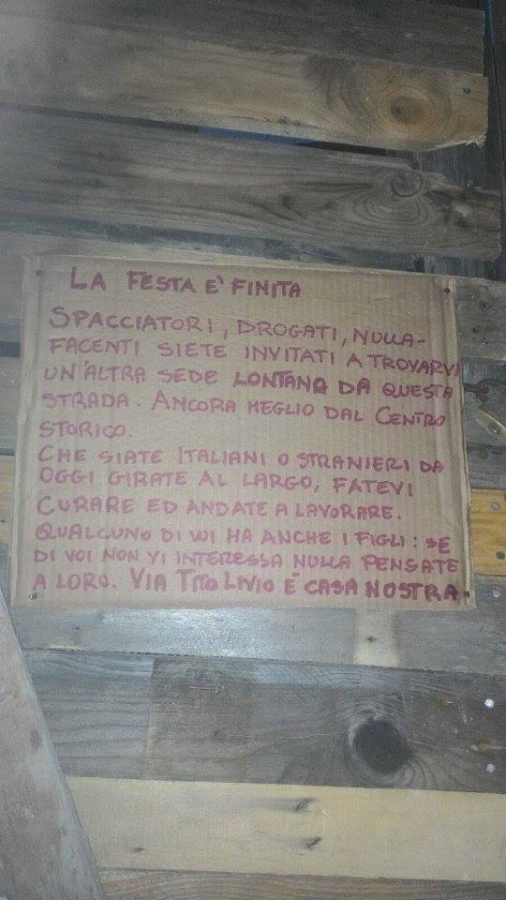 LA FESTA E' FINITA
SPACCIATORI, DROGATI, NULLA-
FACENTI SIETE INVITATI A TROVARVI
UN'ALTRA SEDE LONTANO DA QUESTA
STRADA. ANCORA MEGLIO DAL CENTRO
STORICO.
CHE SIATE ITALIANI O STRANIERI DA
OGGI GIRATE AL LARGO, FATEVI
CURARE ED ANDATE A LAVORARE.
QUALCUNO DI VOI HA ANCHE I FIGLI: SE
DI VOI NON VI INTERESSA NULLA PENSATE
A LORO. VIA TITO LIVIO È CASA NOSTRA